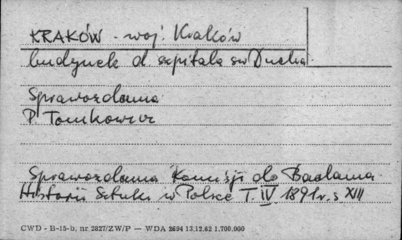 KRAKÓW - woj. Kraków
budynek d. szpitala św Ducha
Sprawozdania
P. Tomkowicz
Sprawozdania Komisji do Badania
Historii Sztuki w Polsce T. IV 1891 r. s XIII
CWD - B-15-b, nr 2827/ZW/P — WDA 2694 13.12.62 1.700.000